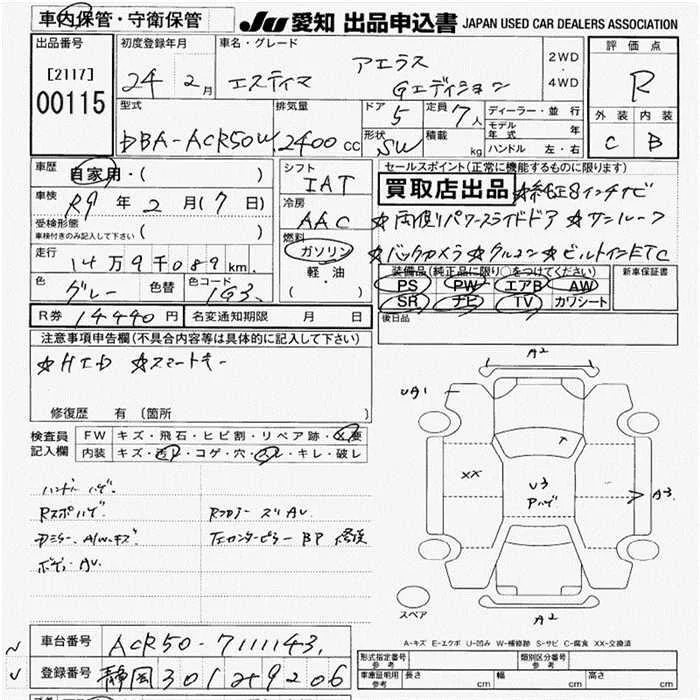 車内保管・守衛保管 JU 愛知 出品申込書 JAPAN USED CAR DEALERS ASSOCIATION
出品番号
[2117]
00115
初度登録年月
24 2月
車名・グレード
エスティマ アエラス Gエディション
2WD
・
4WD
評価点
R
外装 内装
C B
型式
DBA-ACR50W
排気量
2400cc
ドア
5
形状
SW
定員
7人
積載
kg
ディーラー・並行
モデル年式 年
ハンドル 左・右
車歴
自家用・( )
車検
R9年2月(7日)
受検形態
車検付きのみ記入して下さい ( )
走行
14万9千089km.
色 グレー 色替 色コード 1G3.
R券 14440円 名変通知期限 月 日
シフト
IAT
冷房
AAC
燃料
ガソリン
軽・油
・( )
セールスポイント(正常に機能するものに限ります)
買取店出品 ☆純正8インチナビ
☆両側パワースライドドア ☆サンルーフ
☆バックカメラ ☆クルコン ☆ビルトインETC
装備品(純正品に限り○をつけてください) 新車保証書
PS PW エアB AW
SR ナビ TV カワシート
後日品
注意事項申告欄(不具合内容等は具体的に記入して下さい)
☆HID ☆スマートキー
修復歴 有(箇所 )
検査員記入欄
FW キズ・飛石・ヒビ割・リペア跡・X要
内装 キズ・汚れ・コゲ・穴・スレ・キレ・破レ
ハンドルハゲ.
Rスポハゲ
ドアミラー. A/Wキズ
ボディーAU.
Rフロアー ズレAU.
左センターピラー BP 修復
A2
UA1
XX
U3
Pハゲ
A3
スペア
A2
A-キズ E-エクボ U-凹み W-補修跡 S-サビ C-腐食 XX-交換済
車台番号 ACR50-7111143.
登録番号 静岡301そ9206
形式指定番号 参考 類別区分番号 参考
車庫証明用 参考 長さ cm 幅 cm 高さ cm